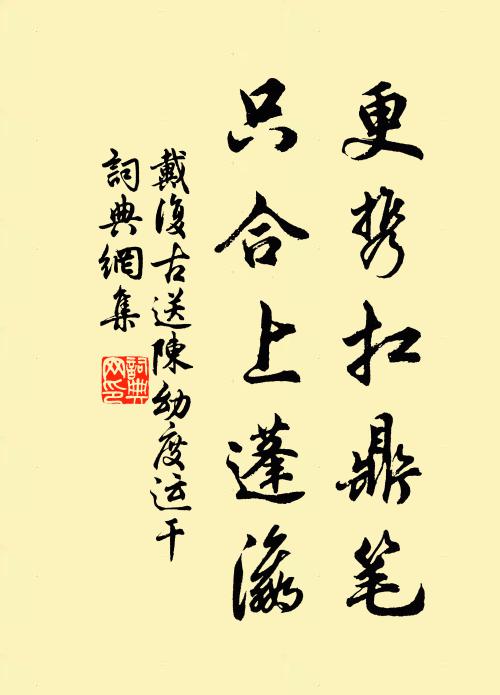 更携扛鼎笔
只合上蓬瀛
戴復古送陳幼度运干
詞典網集
詞典
网印